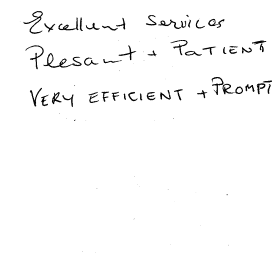 Excellent Services
Plesant + PATIENT
VERY EFFICIENT + PROMPT